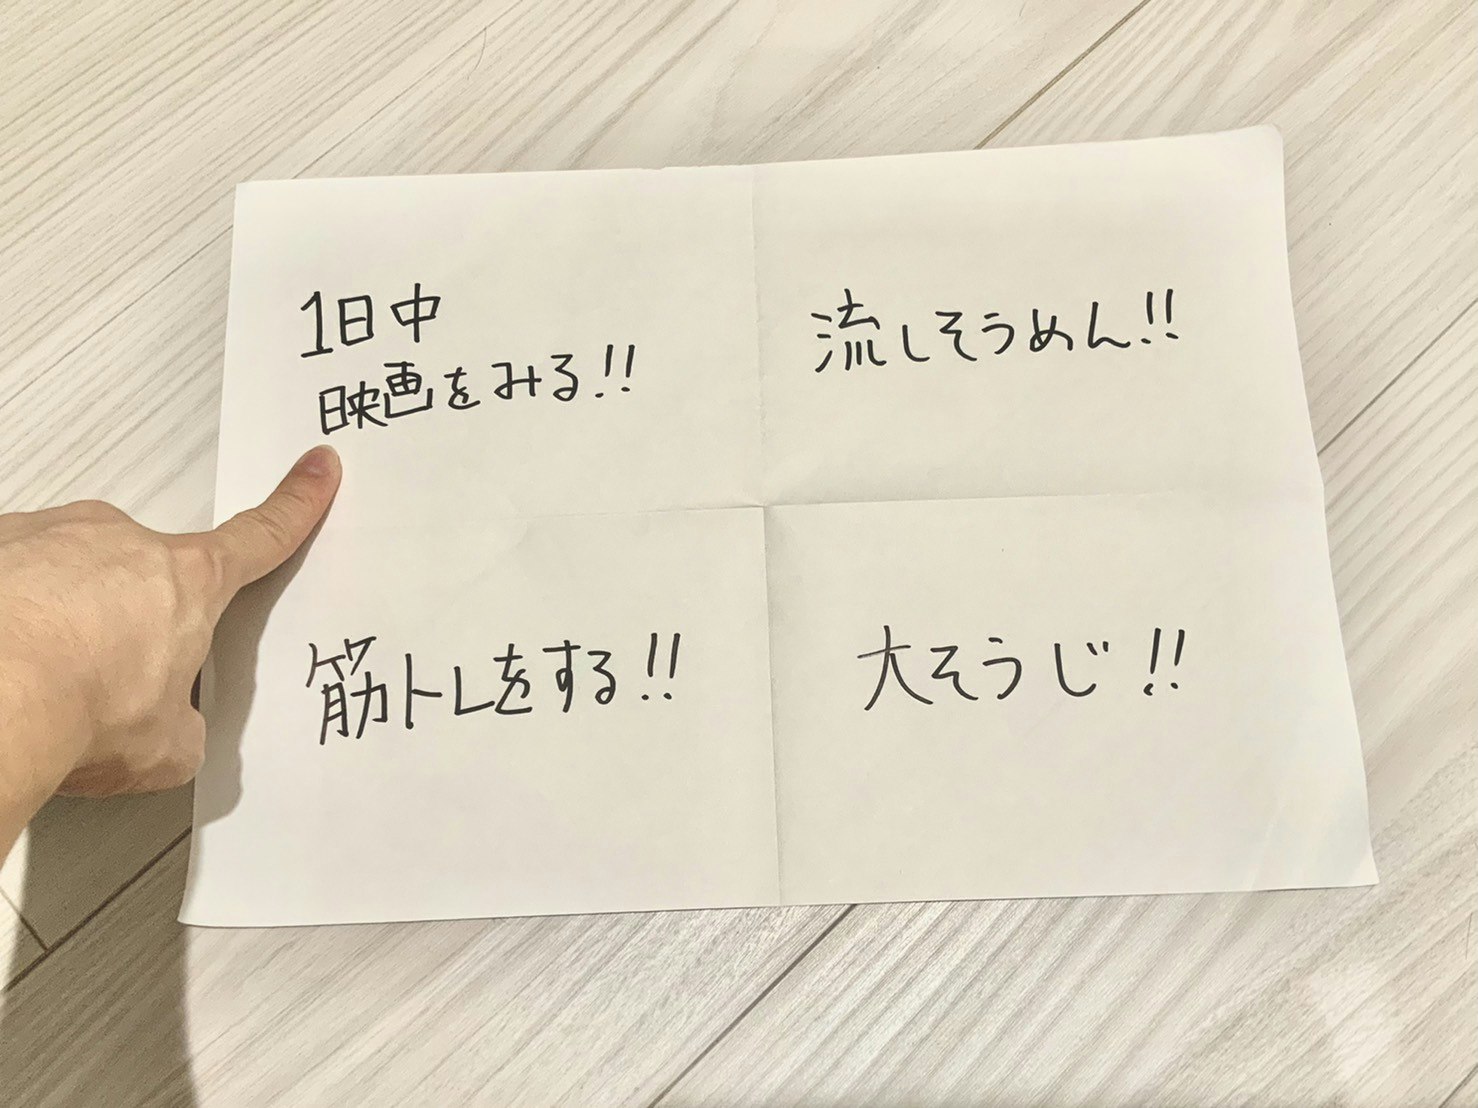 1日中
映画をみる!!
流しそうめん!!
筋トレをする!!
大そうじ!!